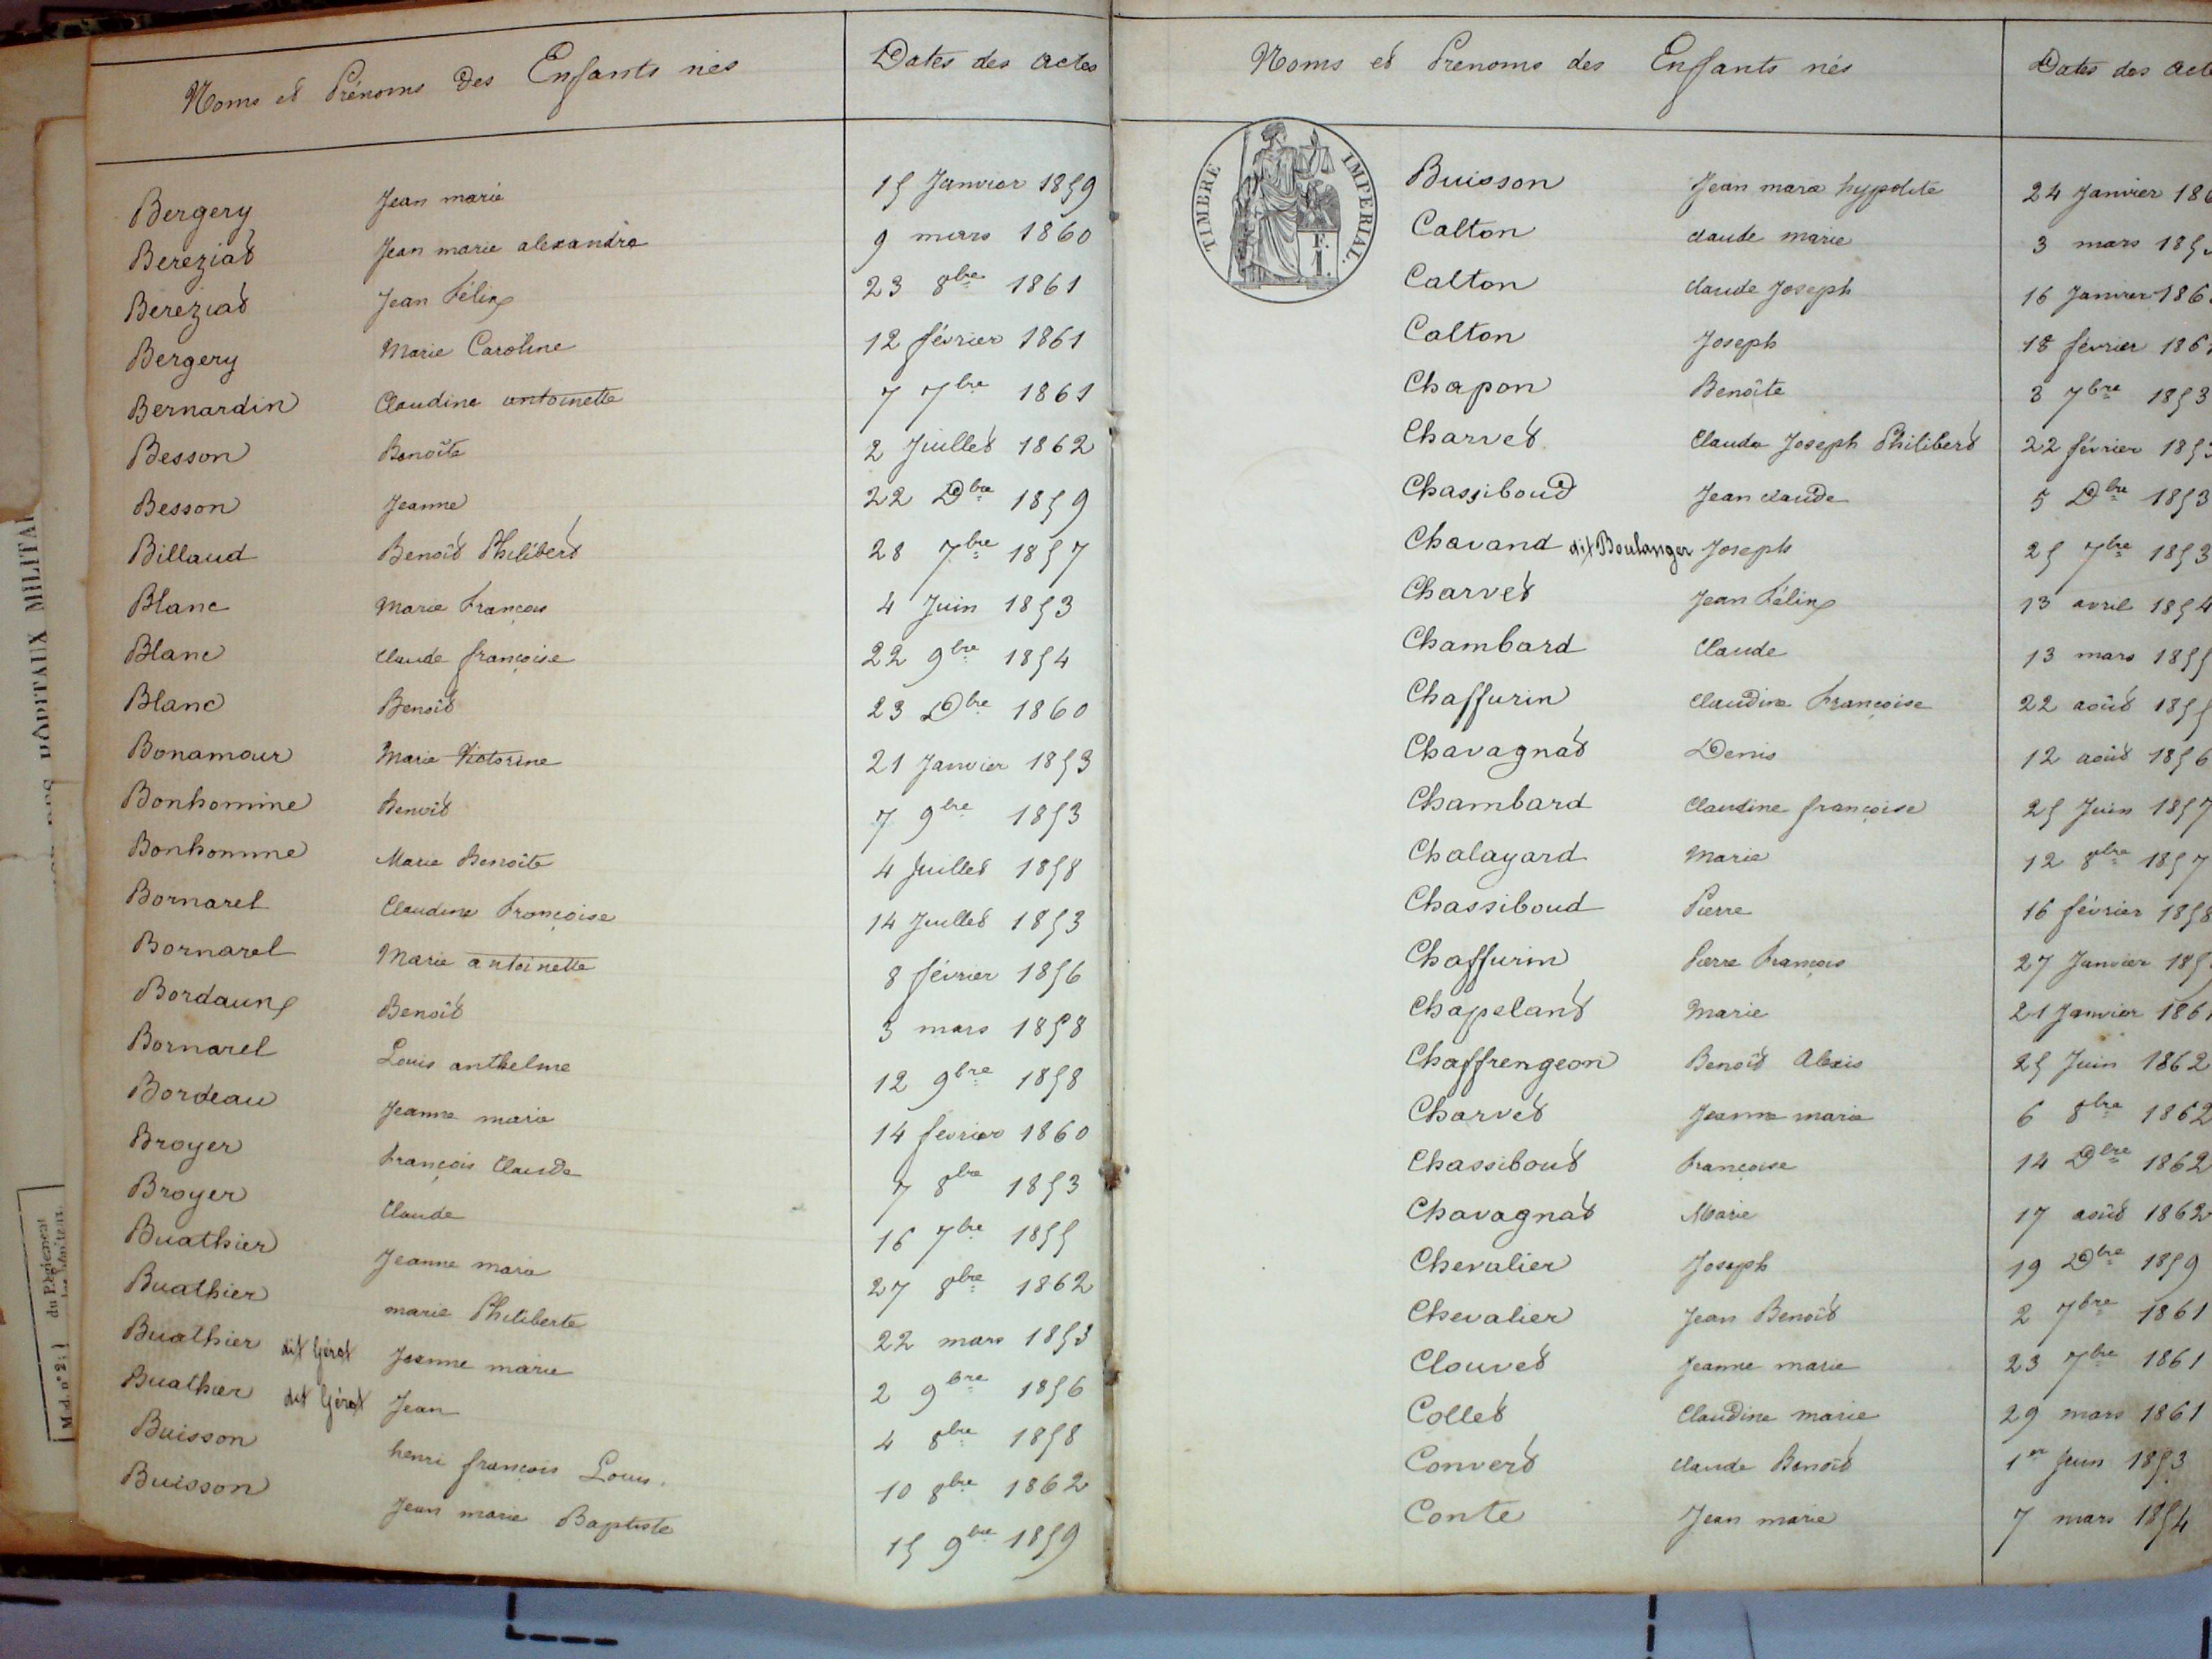 Noms et Prénoms des Enfants nés Dates des actes
Bergery Jean marie 15 Janvier 1859
Bereziat Jean marie alexandre 9 mars 1860
Bereziat Jean Félix 23 8bre 1861
Bergery Marie Caroline 12 février 1861
Bernardin Claudine antoinette 7 7bre 1861
Besson Benoîte 2 Juillet 1862
Besson Jeanne 22 Dbre 1859
Billaud Benoît Philibert 28 7bre 1857
Blanc Marie François 4 Juin 1853
Blanc Claude françoise 22 9bre 1854
Blanc Benoît 23 Dbre 1860
Bonamour Marie Victorine 21 Janvier 1853
Bonhomme Benoît 7 9bre 1853
Bonhomme Marie Benoîte 4 Juillet 1858
Bornarel Claudine Françoise 14 Juillet 1853
Bornarel Marie antoinette 8 février 1856
Bordaux Benoît 3 mars 1858
Bornarel Louis anthelme 12 9bre 1858
Bordeau Jeanne marie 14 février 1860
Broyer François Claude 7 8bre 1853
Broyer Claude 16 7bre 1855
Buathier Jeanne marie 27 8bre 1862
Buathier marie Philiberte 22 mars 1853
Buathier dit Gérat Jeanne marie 2 9bre 1856
Buathier dit Gérat Jean 4 8bre 1858
Buisson henri françois Louis. 10 8bre 1862
Buisson Jean marie Baptiste 15 9bre 1859
Noms et Prenoms des Enfants nés Dates des act
TIMBRE IMPERIAL.
F.
1.
Buisson Jean marie hypolite 24 Janvier 186
Calton claude marie 3 mars 185
Calton claude Joseph 16 Janvier 186
Calton Joseph 18 février 186
Chapon Benoîte 3 7bre 1853
Charvet Claude Joseph Philibert 22 février 185
Chassiboud Jean claude 5 Dbre 1853
Chavand dit Boulanger Joseph 25 7bre 1853
Charvet Jean Félix 13 avril 1854
Chambard Claude 13 mars 1855
Chaffurin Claudine Françoise 22 août 1855
Chavagnat Denis 12 août 1856
Chambard Claudine françoise 25 Juin 1857
Chalayard Marie 12 8bre 1857
Chassiboud Pierre 16 février 1858
Chaffurin Pierre François 27 Janvier 185
Chapeland Marie 21 Janvier 1861
Chaffrengeon Benoît Alexis 25 Juin 1862
Charvet Jeanne marie 6 8bre 1862
Chassibout Françoise 14 Dbre 1862
Chavagnat Marie 17 août 1862
Chevalier Joseph 19 Dbre 1859
Chevalier Jean Benoît 2 7bre 1861
Clouvet Jeanne marie 23 7bre 1861
Collet Claudine marie 29 mars 1861
Convert claude Benoît 1er Juin 1853
Conte Jean marie 7 mars 1854
HÔPITAUX MILITAI
du Régiment
M.d. n° 2;